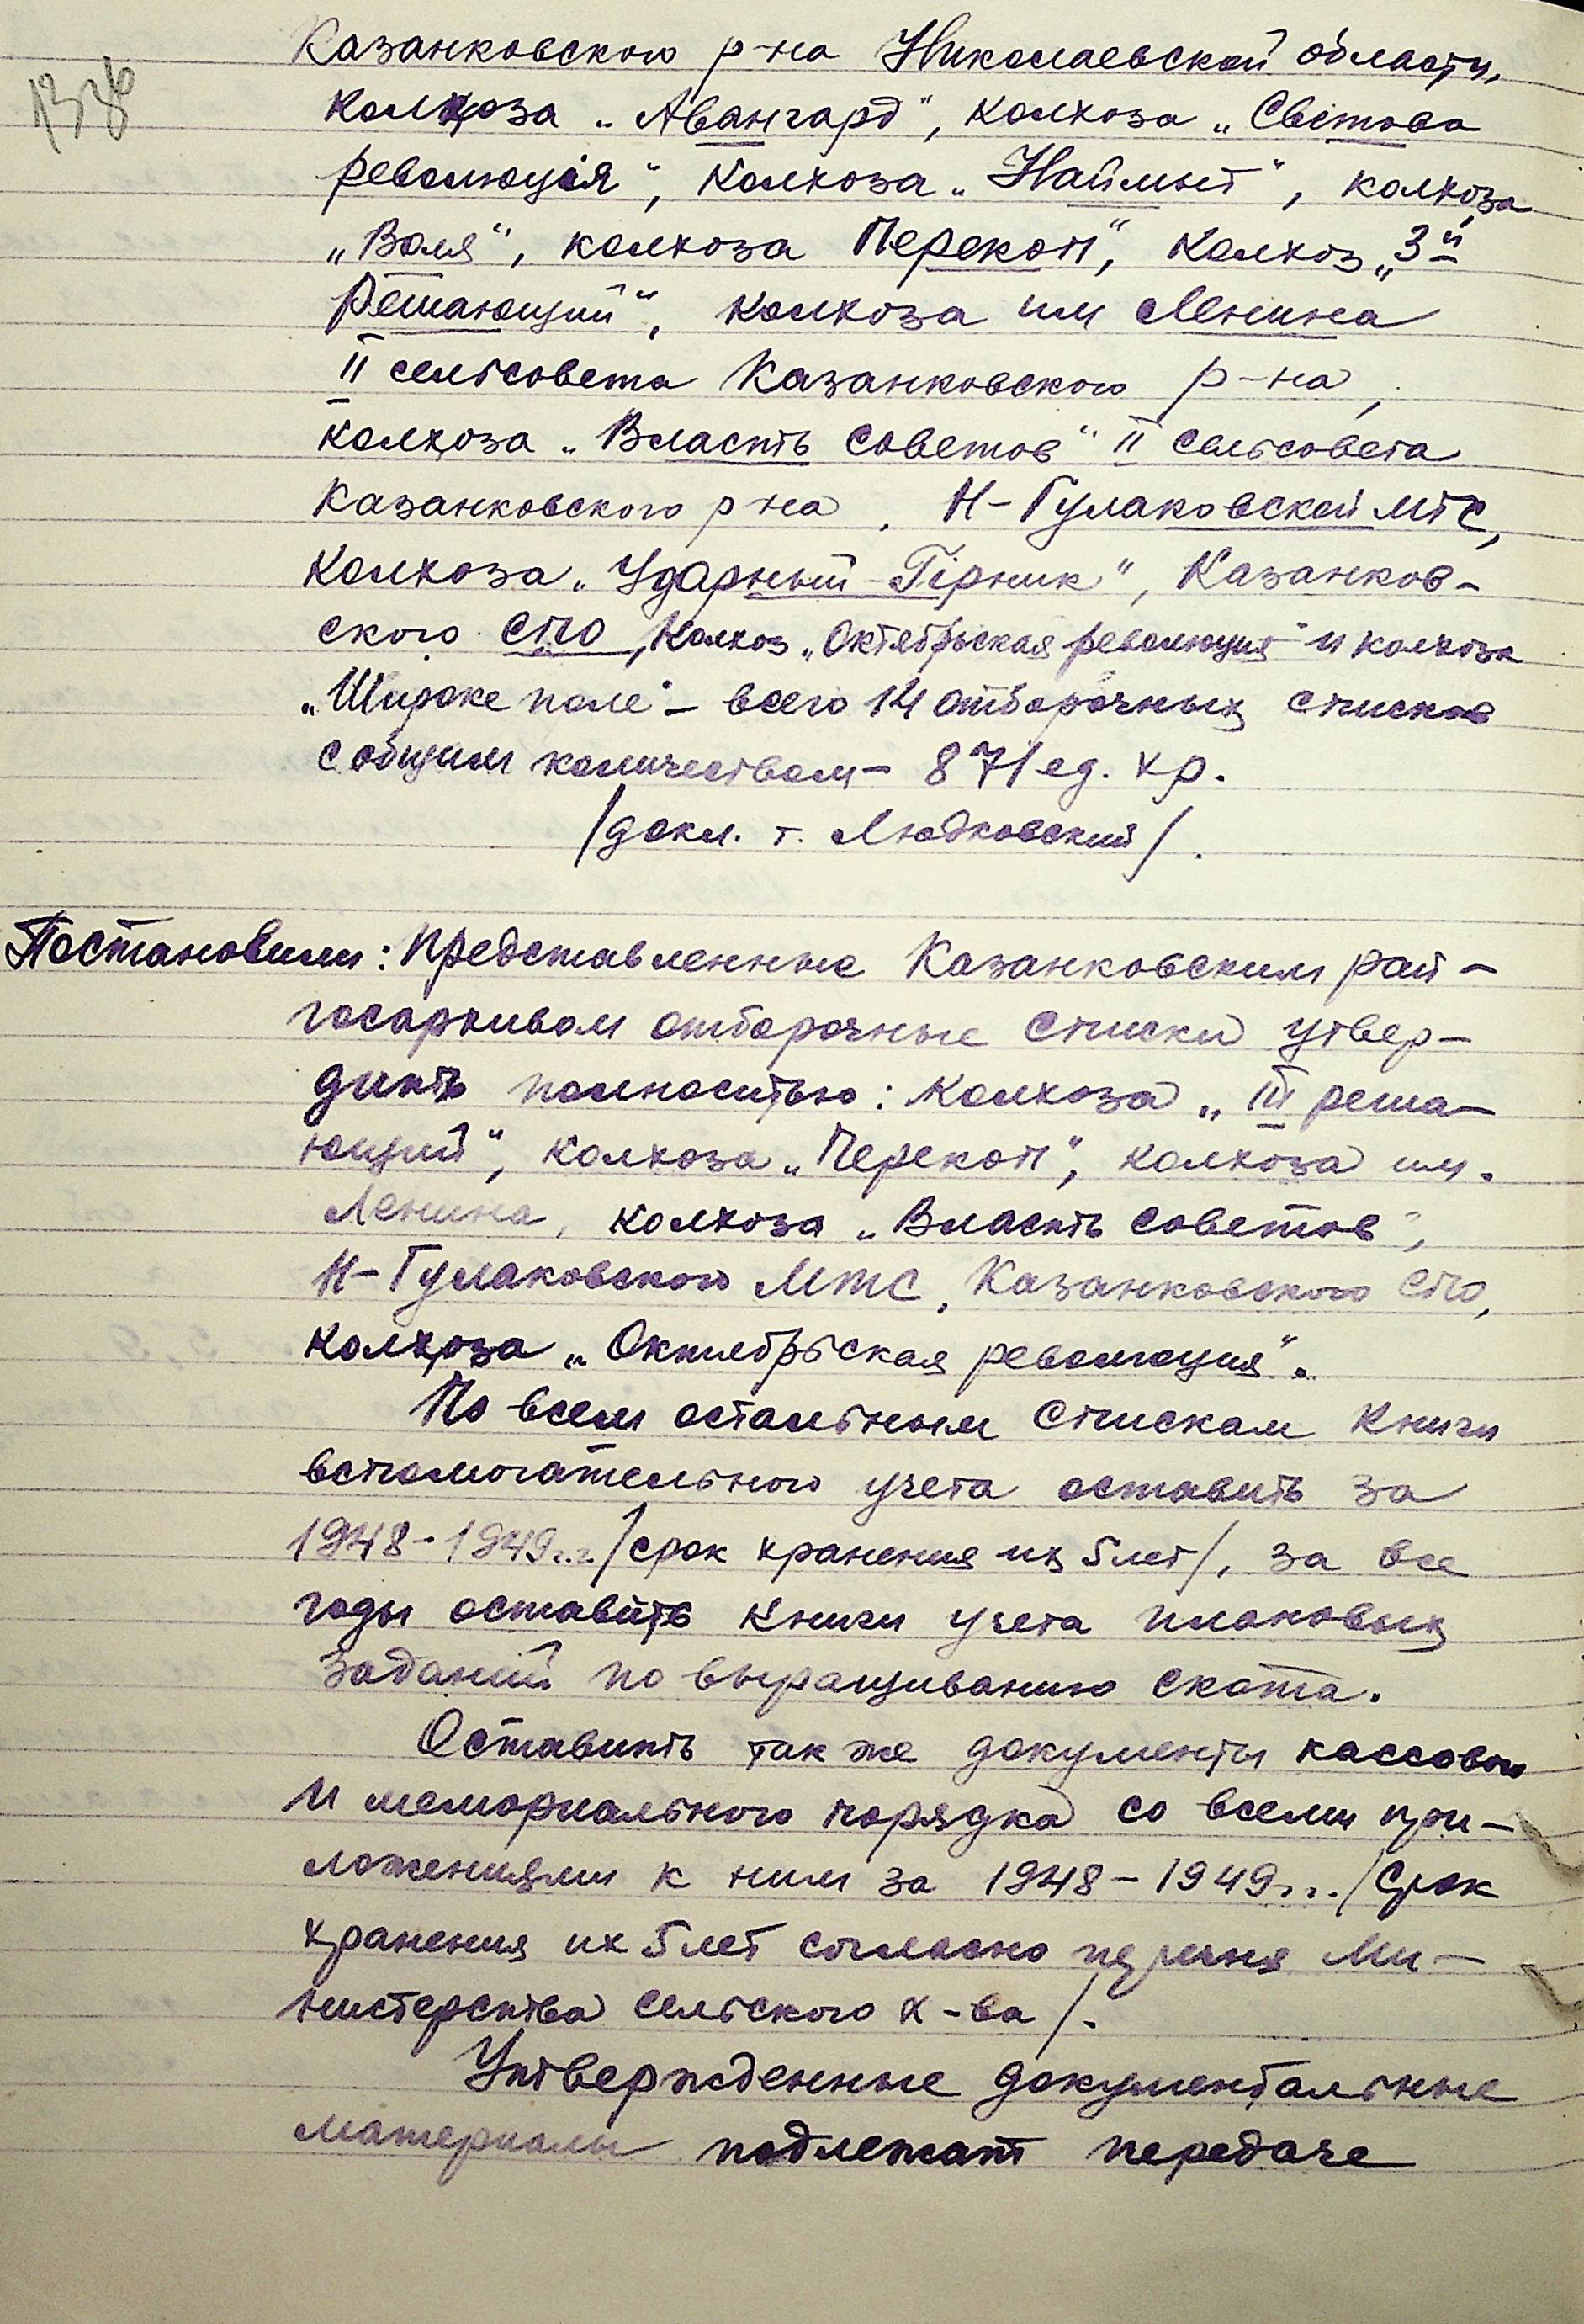 133б
Казанковского р-на Николаевской области,
колхоза „Авангард", колхоза „Світова
революція", колхоза „Наймыт", колхоза
„Воля", колхоза Перекоп", колхоз „3й
Решающий", колхоза им Ленина
II сельсовета Казанковского р-на,
колхоза „Власть советов" II сельсовета
Казанковского р-на, Н-Гулаковской МТС,
колхоза „Ударный-Гірник", Казанков-
ского СПО, колхоз „Октябрьская революция" и колхоза
„Широке поле" – всего 14 отборочных списков
с общим количеством – 871 ед. хр.
/докл. т. Людковский/.
Постановили: Представленные Казанковским рай-
госархивом отборочные списки утвер-
дить полностью: колхоза „III реша-
ющий", колхоза „Перекоп", колхоза им.
Ленина, колхоза „Власть советов",
Н-Гулаковского МТС, Казанковского СПО,
колхоза „Октябрьская революция".
По всем остальным спискам книги
вспомогательного учета оставить за
1948-1949г.г. /срок хранения их 5 лет/, за все
годы оставить книги учета плановых
заданий по выращиванию скота.
Оставить так же документы кассового
и мемориального порядка со всеми при-
ложениями к ним за 1948-1949г.г. /Срок
хранения их 5 лет согласно перечня Ми-
нистерства сельского х-ва/.
Утвержденные документальные
материалы подлежат передаче